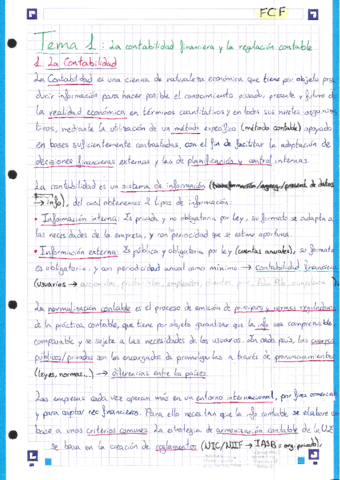 FCF
Tema 1: La contabilidad financiera y la regulación contable
1. La Contabilidad
La Contabilidad es una ciencia de naturaleza económica que tiene por objeto pro
ducir información para hacer posible el conocimiento pasado, presente y futuro de
la realidad económica en términos cuantitativos y en todos sus niveles organiza
tivos, mediante la utilización de un método específico (método contable) apoyado
en bases suficientemente contrastadas, con el fin de facilitar la adopción de
decisiones financieras externas y las de planificación y control internas.
La contabilidad es un sistema de información (transformación/agreg./present. de datos
→ info), del cual obtenemos 2 tipos de información:
• Información interna: Es privada y no obligatoria por ley, su formato se adapta a
las necesidades de la empresa, y con periodicidad que se estime oportuna.
• Información externa: Es pública y obligatoria por ley (cuentas anuales), su formato
es obligatorio, y con periodicidad anual como mínimo → contabilidad financiera
(usuarios →
La normalización contable es el proceso de emisión de principios y normas reguladoras
de la práctica contable, que tiene por objeto garantizar que la info sea comprensible,
comparable y se sujete a las necesidades de los usuarios. En cada país, los cuerpos
públicos/privados son los encargados de promulgarlos a través de pronunciamientos
(leyes, normas...) → diferencias entre los países
Las empresas cada vez operan más en un entorno internacional, por fines comercial
y para captar rec. financieros. Para ello necesitan que la info contable se elabore con
base a unos criterios comunes. La estrategia de armonización contable de la UE
se basa en la creación de reglamentos (NIC/NIIF → IASB = org. privado),